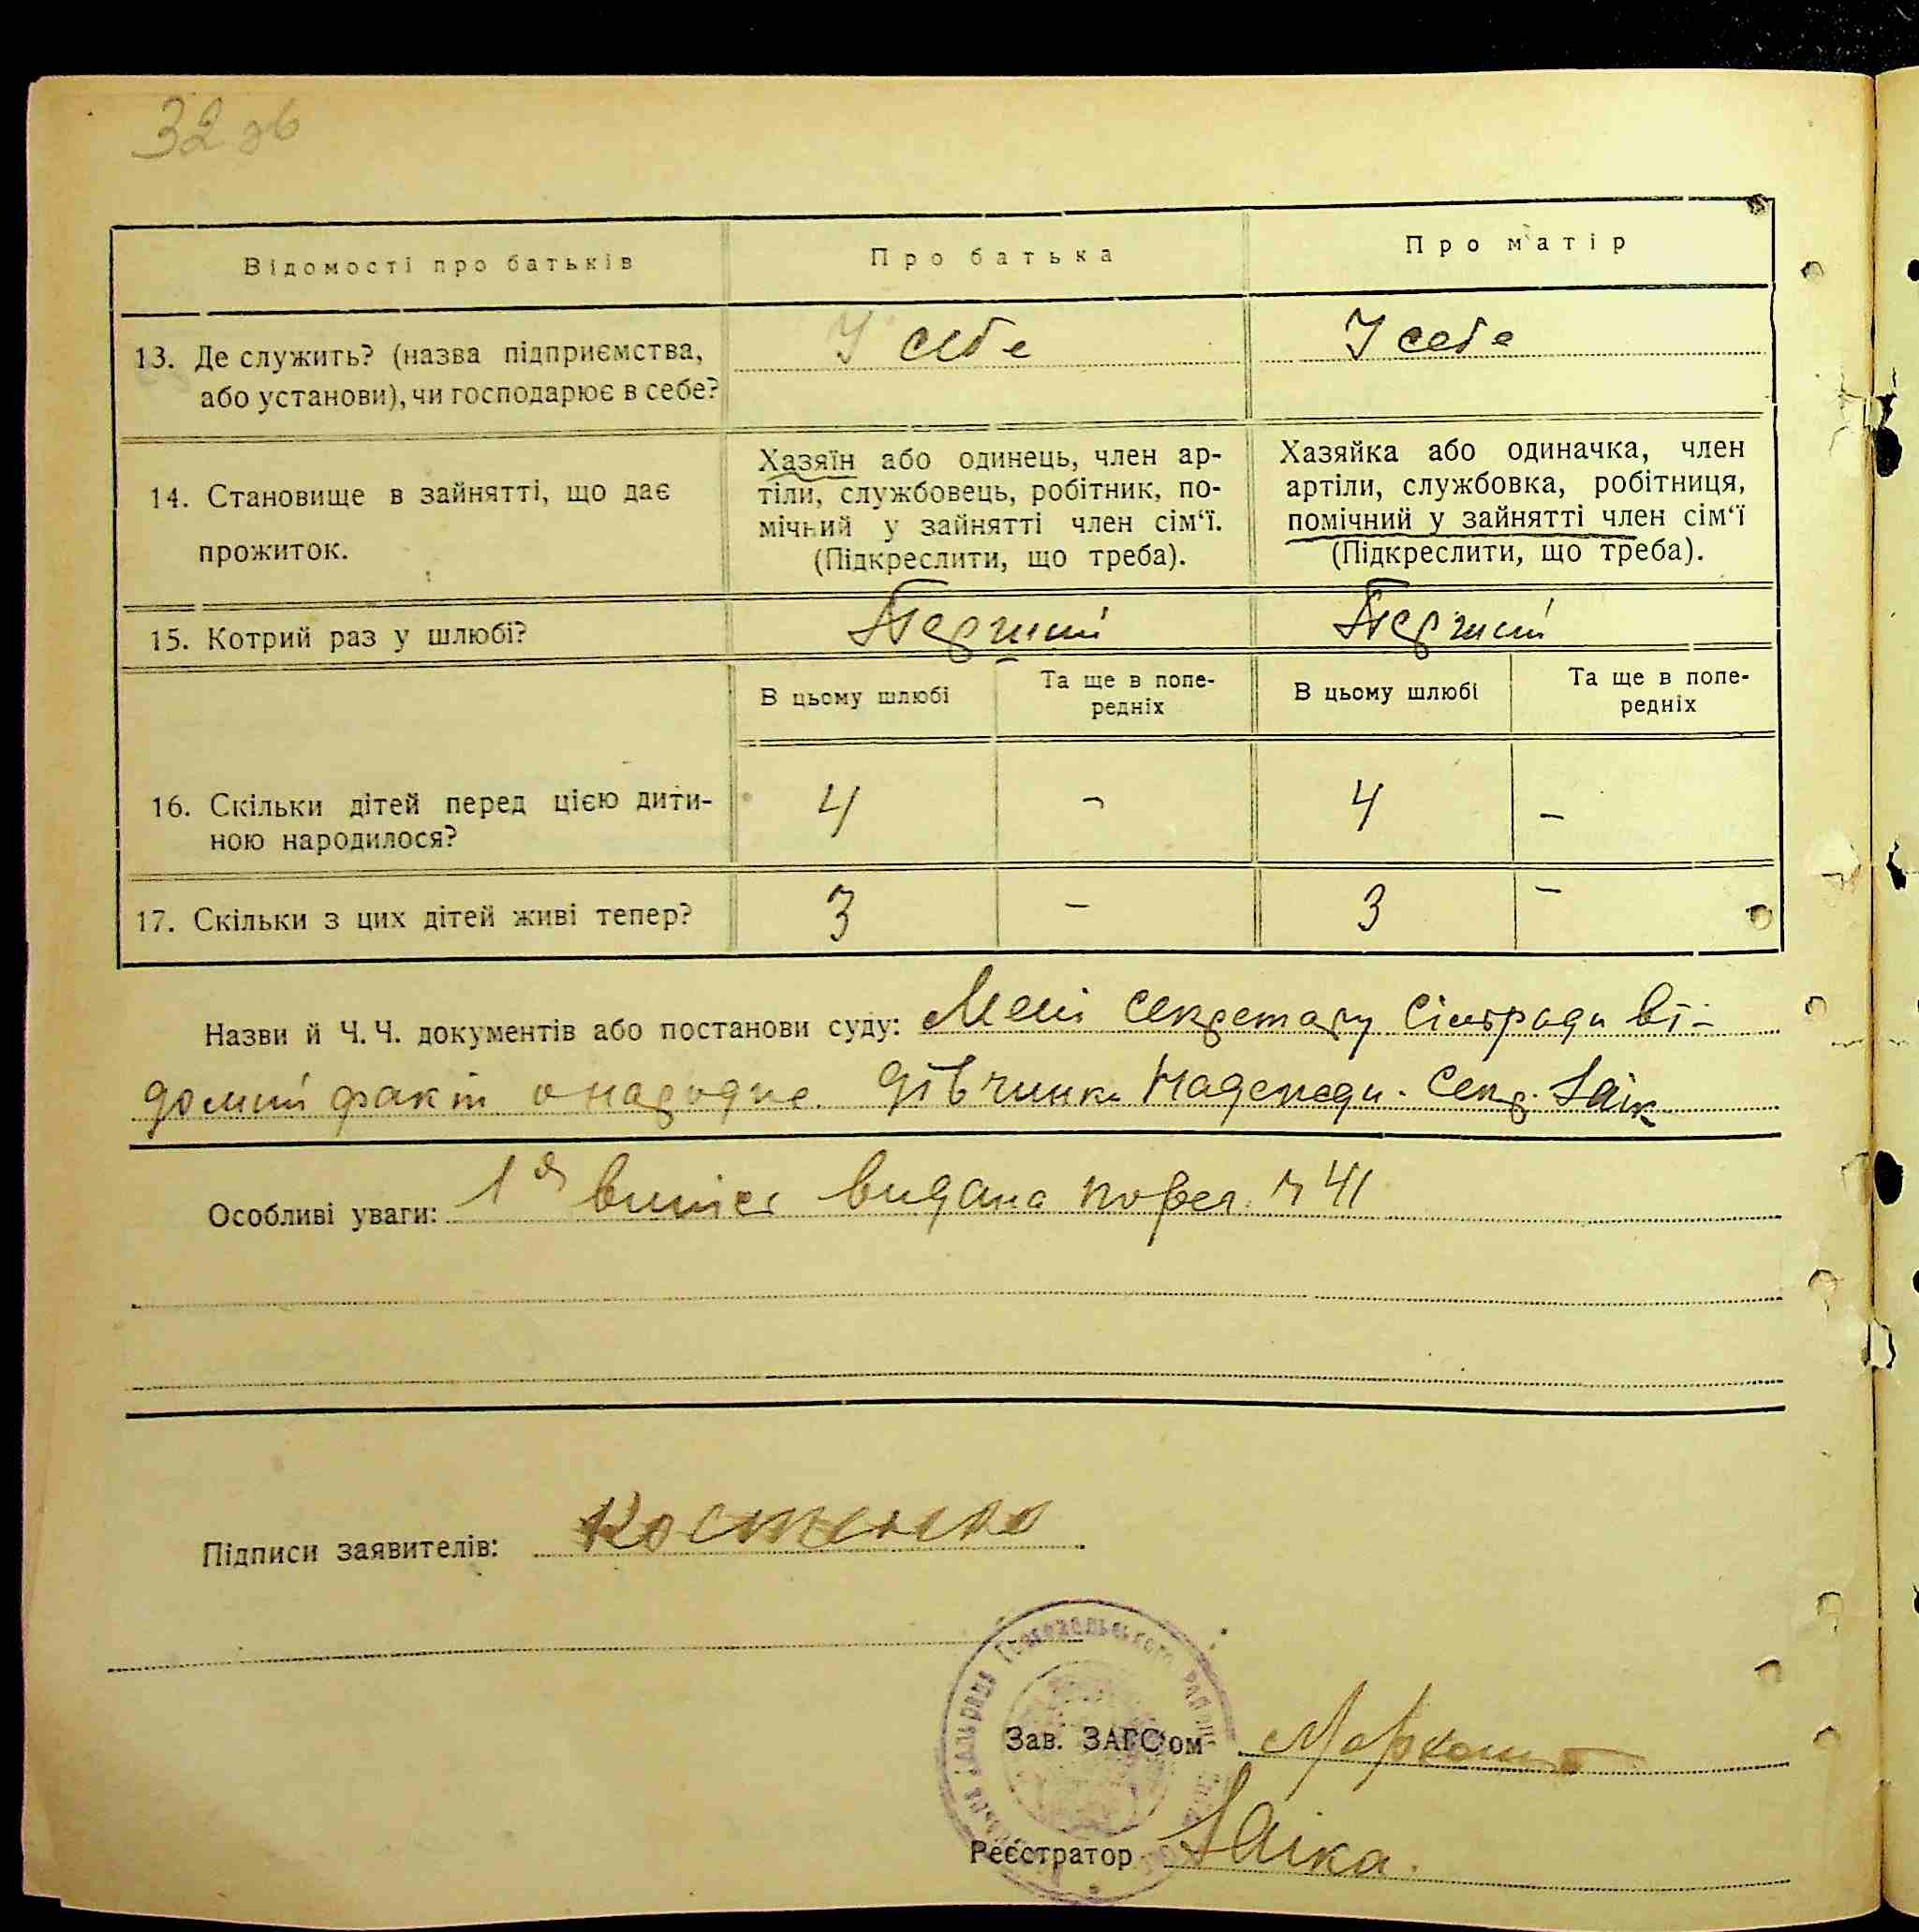 32 зв
Відомості про батьків
Про батька
Про матір
13. Де служить? (назва підприємства,
або установи), чи господарює в себе?
У себе
У себе
14. Становище в зайнятті, що дає
прожиток.
Хазяїн або одинець, член ар-
тіли, службовець, робітник, по-
мічний у зайнятті член сім‘ї.
(Підкреслити, що треба).
Хазяйка або одиначка, член
артіли, службовка, робітниця,
помічний у зайнятті член сім‘ї
(Підкреслити, що треба).
15. Котрий раз у шлюбі?
Перший
Перший
В цьому шлюбі
Та ще в попе-
редніх
В цьому шлюбі
Та ще в попе-
редніх
16. Скільки дітей перед цією дити-
ною народилося?
4
-
4
-
17. Скільки з цих дітей живі тепер?
3
-
3
-
Назви й Ч. Ч. документів або постанови суду: Мені секретару Сільради ві-
домий факт о народже. дівчинки Секр. Заїк
Особливі уваги: 1а випис видана 41
Підписи заявителів: Костенко
Зав. ЗАГС‘ом
Реєстратор Заїка.